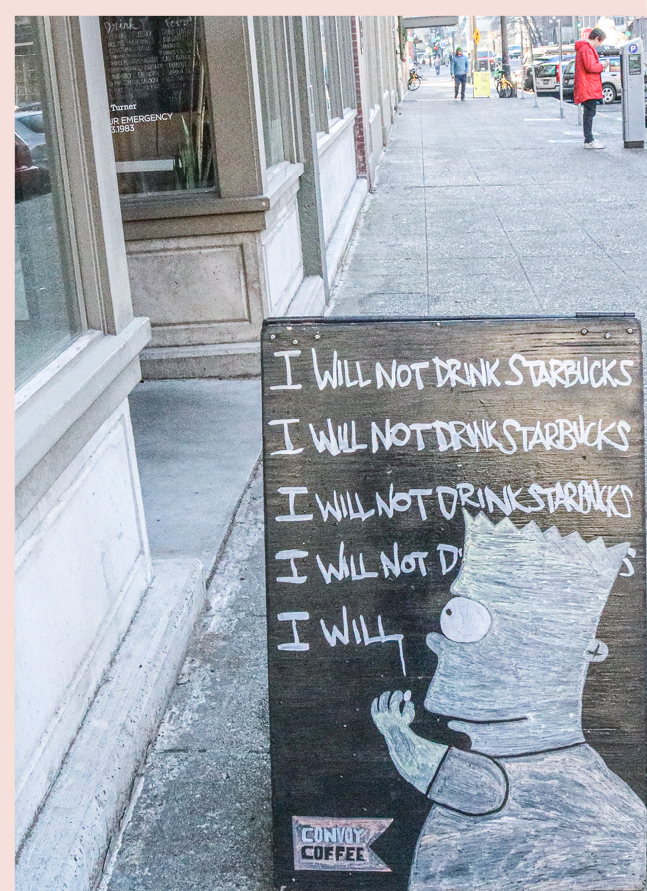 Drink
Turner
UR EMERGENCY
3.1983
P
I WILL NOT DRINK STARBUCKS
I WILL NOT DRINK STARBUCKS
I WILL NOT DRINK STARBUCKS
I WILL NOT D S
I WILL
CONVOY
COFFEE